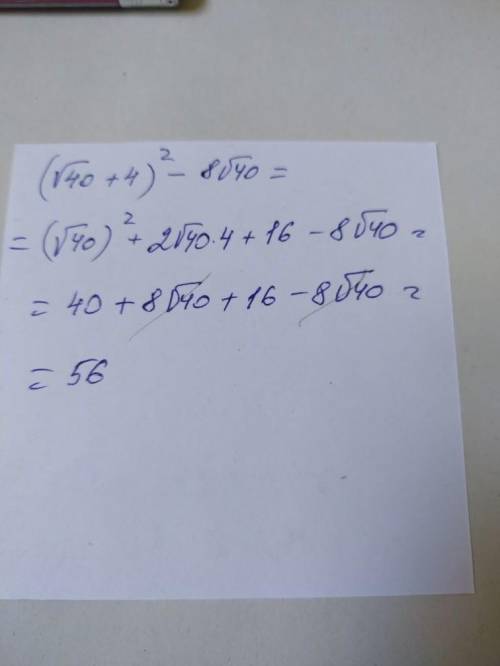 (√40 + 4)² - 8√40 =
= (√40)² + 2√40·4 + 16 - 8√40 =
= 40 + 8√40 + 16 - 8√40 =
= 56